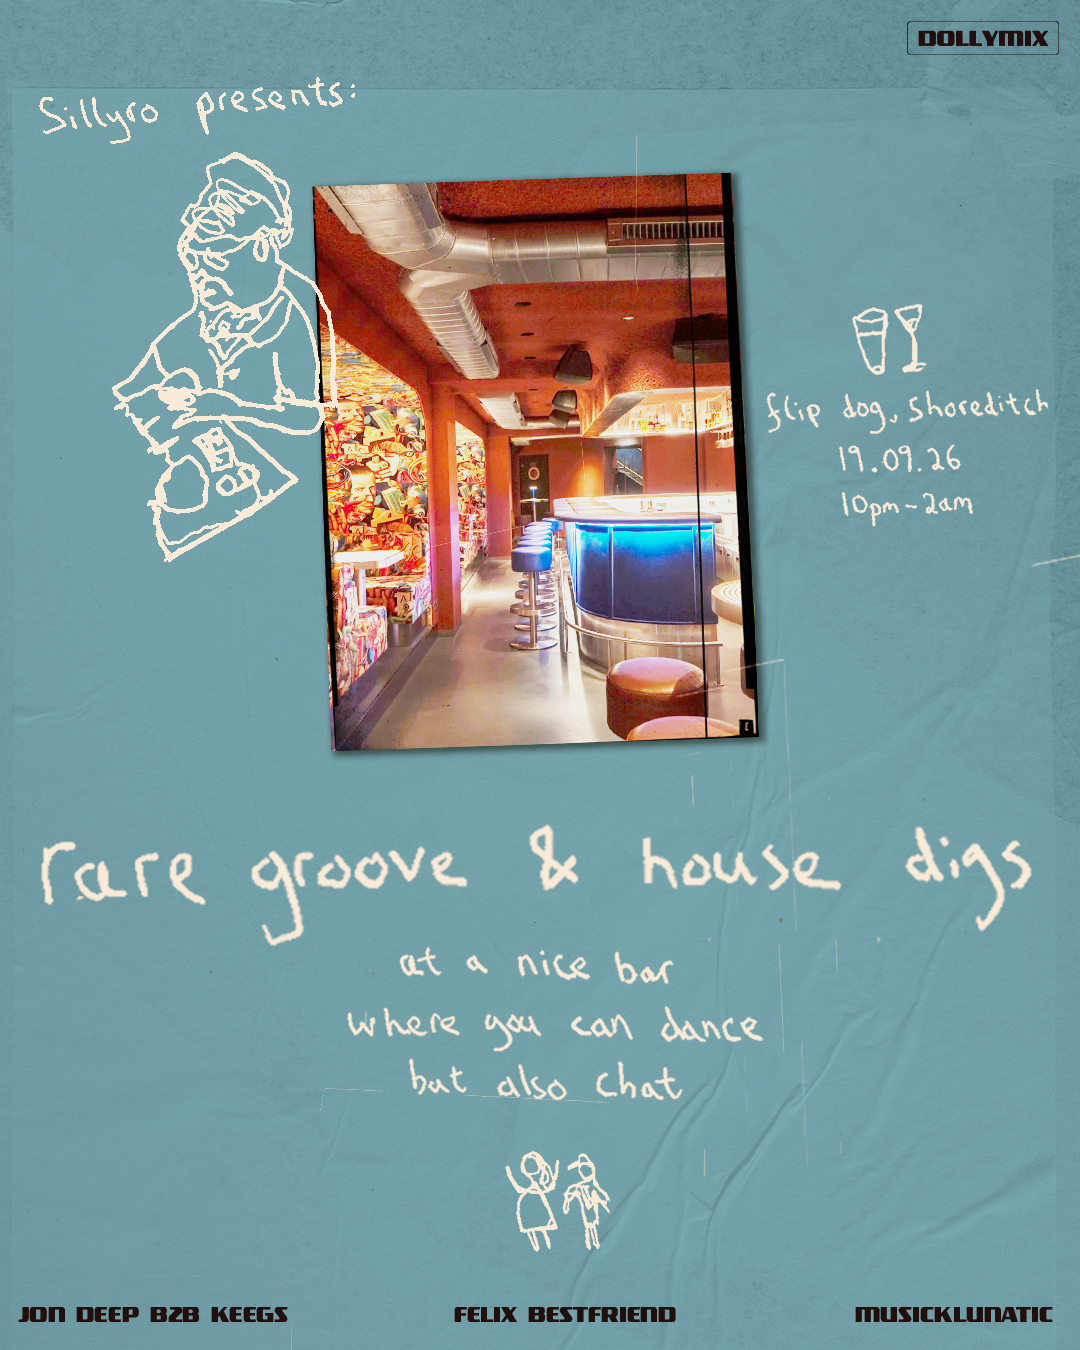 DOLLYMIX
Sillyro presents:
flip dog, Shoreditch
19.09.26
10pm-2am
rare groove & house digs
at a nice bar
where you can dance
but also chat
JON DEEP B2B KEEGS
FELIX BESTFRIEND
MUSICKLUNATIC